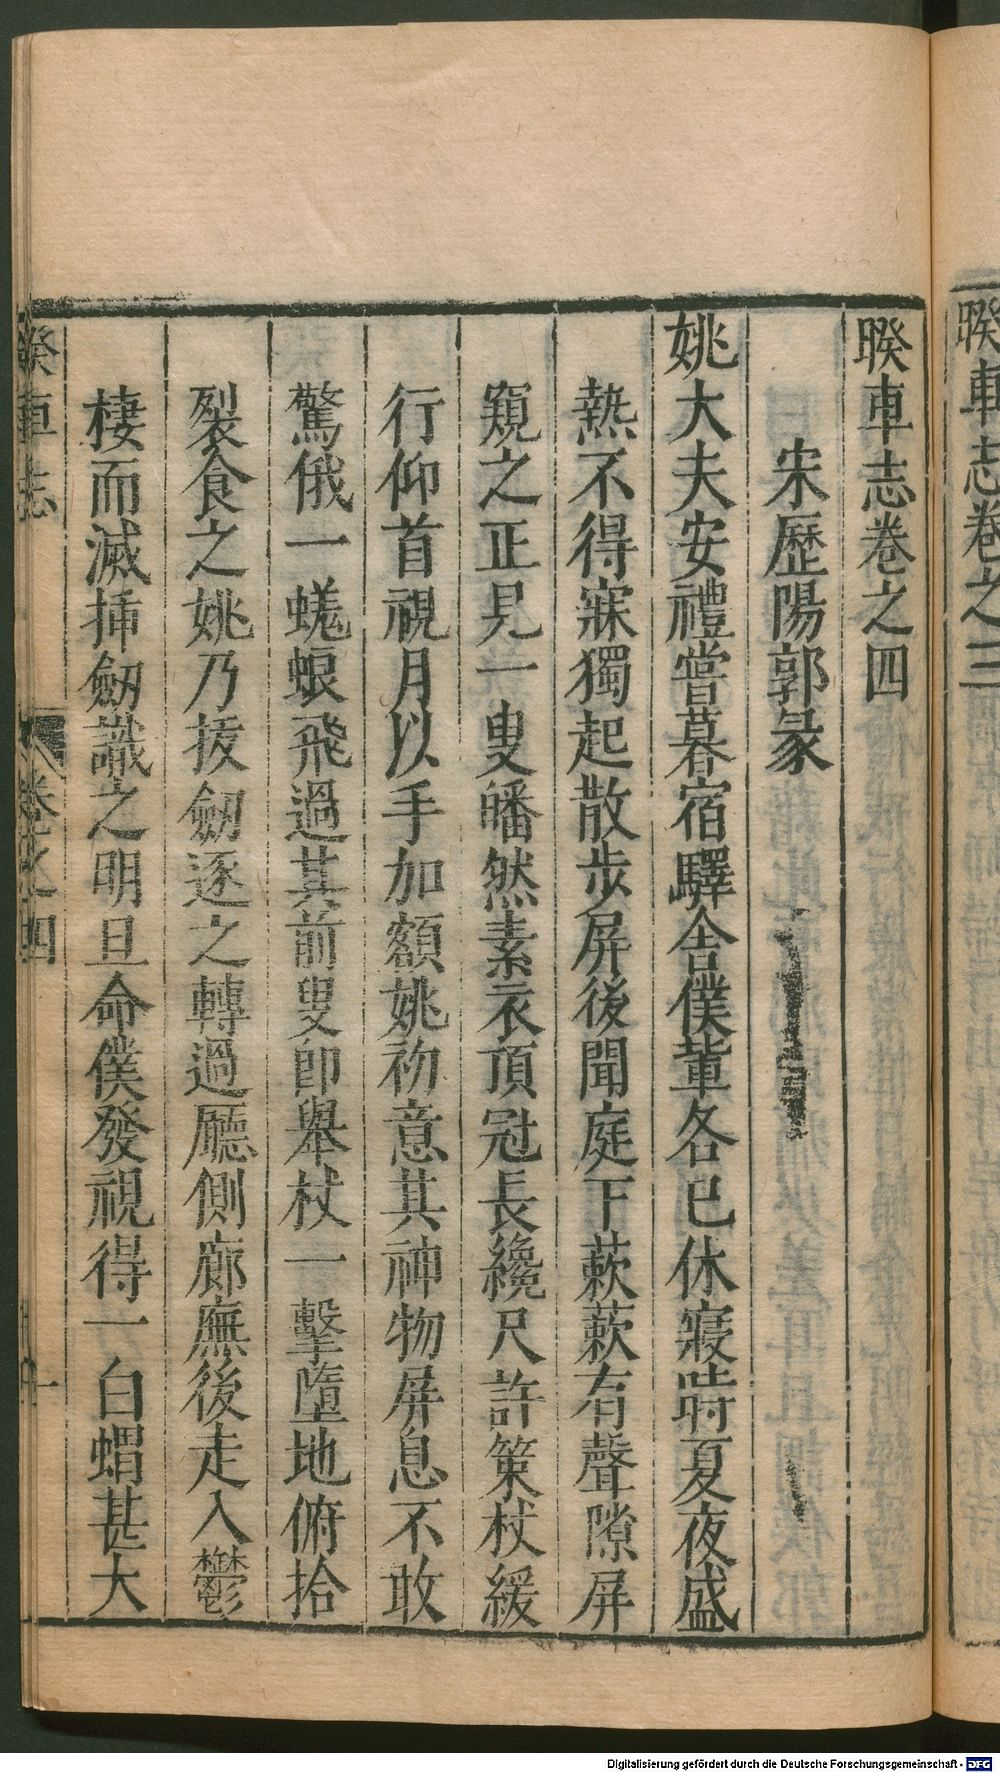 睽車志卷之三
睽車志卷之四
宋歷陽郭彖
姚大夫安禮嘗暮宿驛舍僕輩各已休寢時夏夜盛
熱不得寐獨起散步屏後聞庭下蔌蔌有聲隙屏
窺之正見一叟皤然素衣頂冠長纔尺許策杖緩
行仰首視月以手加額姚初意其神物屏息不敢
驚俄一蜣蜋飛過其前叟卽舉杖一擊墮地俯拾
裂食之姚乃拔劒逐之轉過廳側廊廡後走入鬱
棲而滅揷劒識之明旦命僕發視得一白蝟甚大
睽車志
卷之四
一
Digitalisierung gefördert durch die Deutsche Forschungsgemeinschaft - DFG